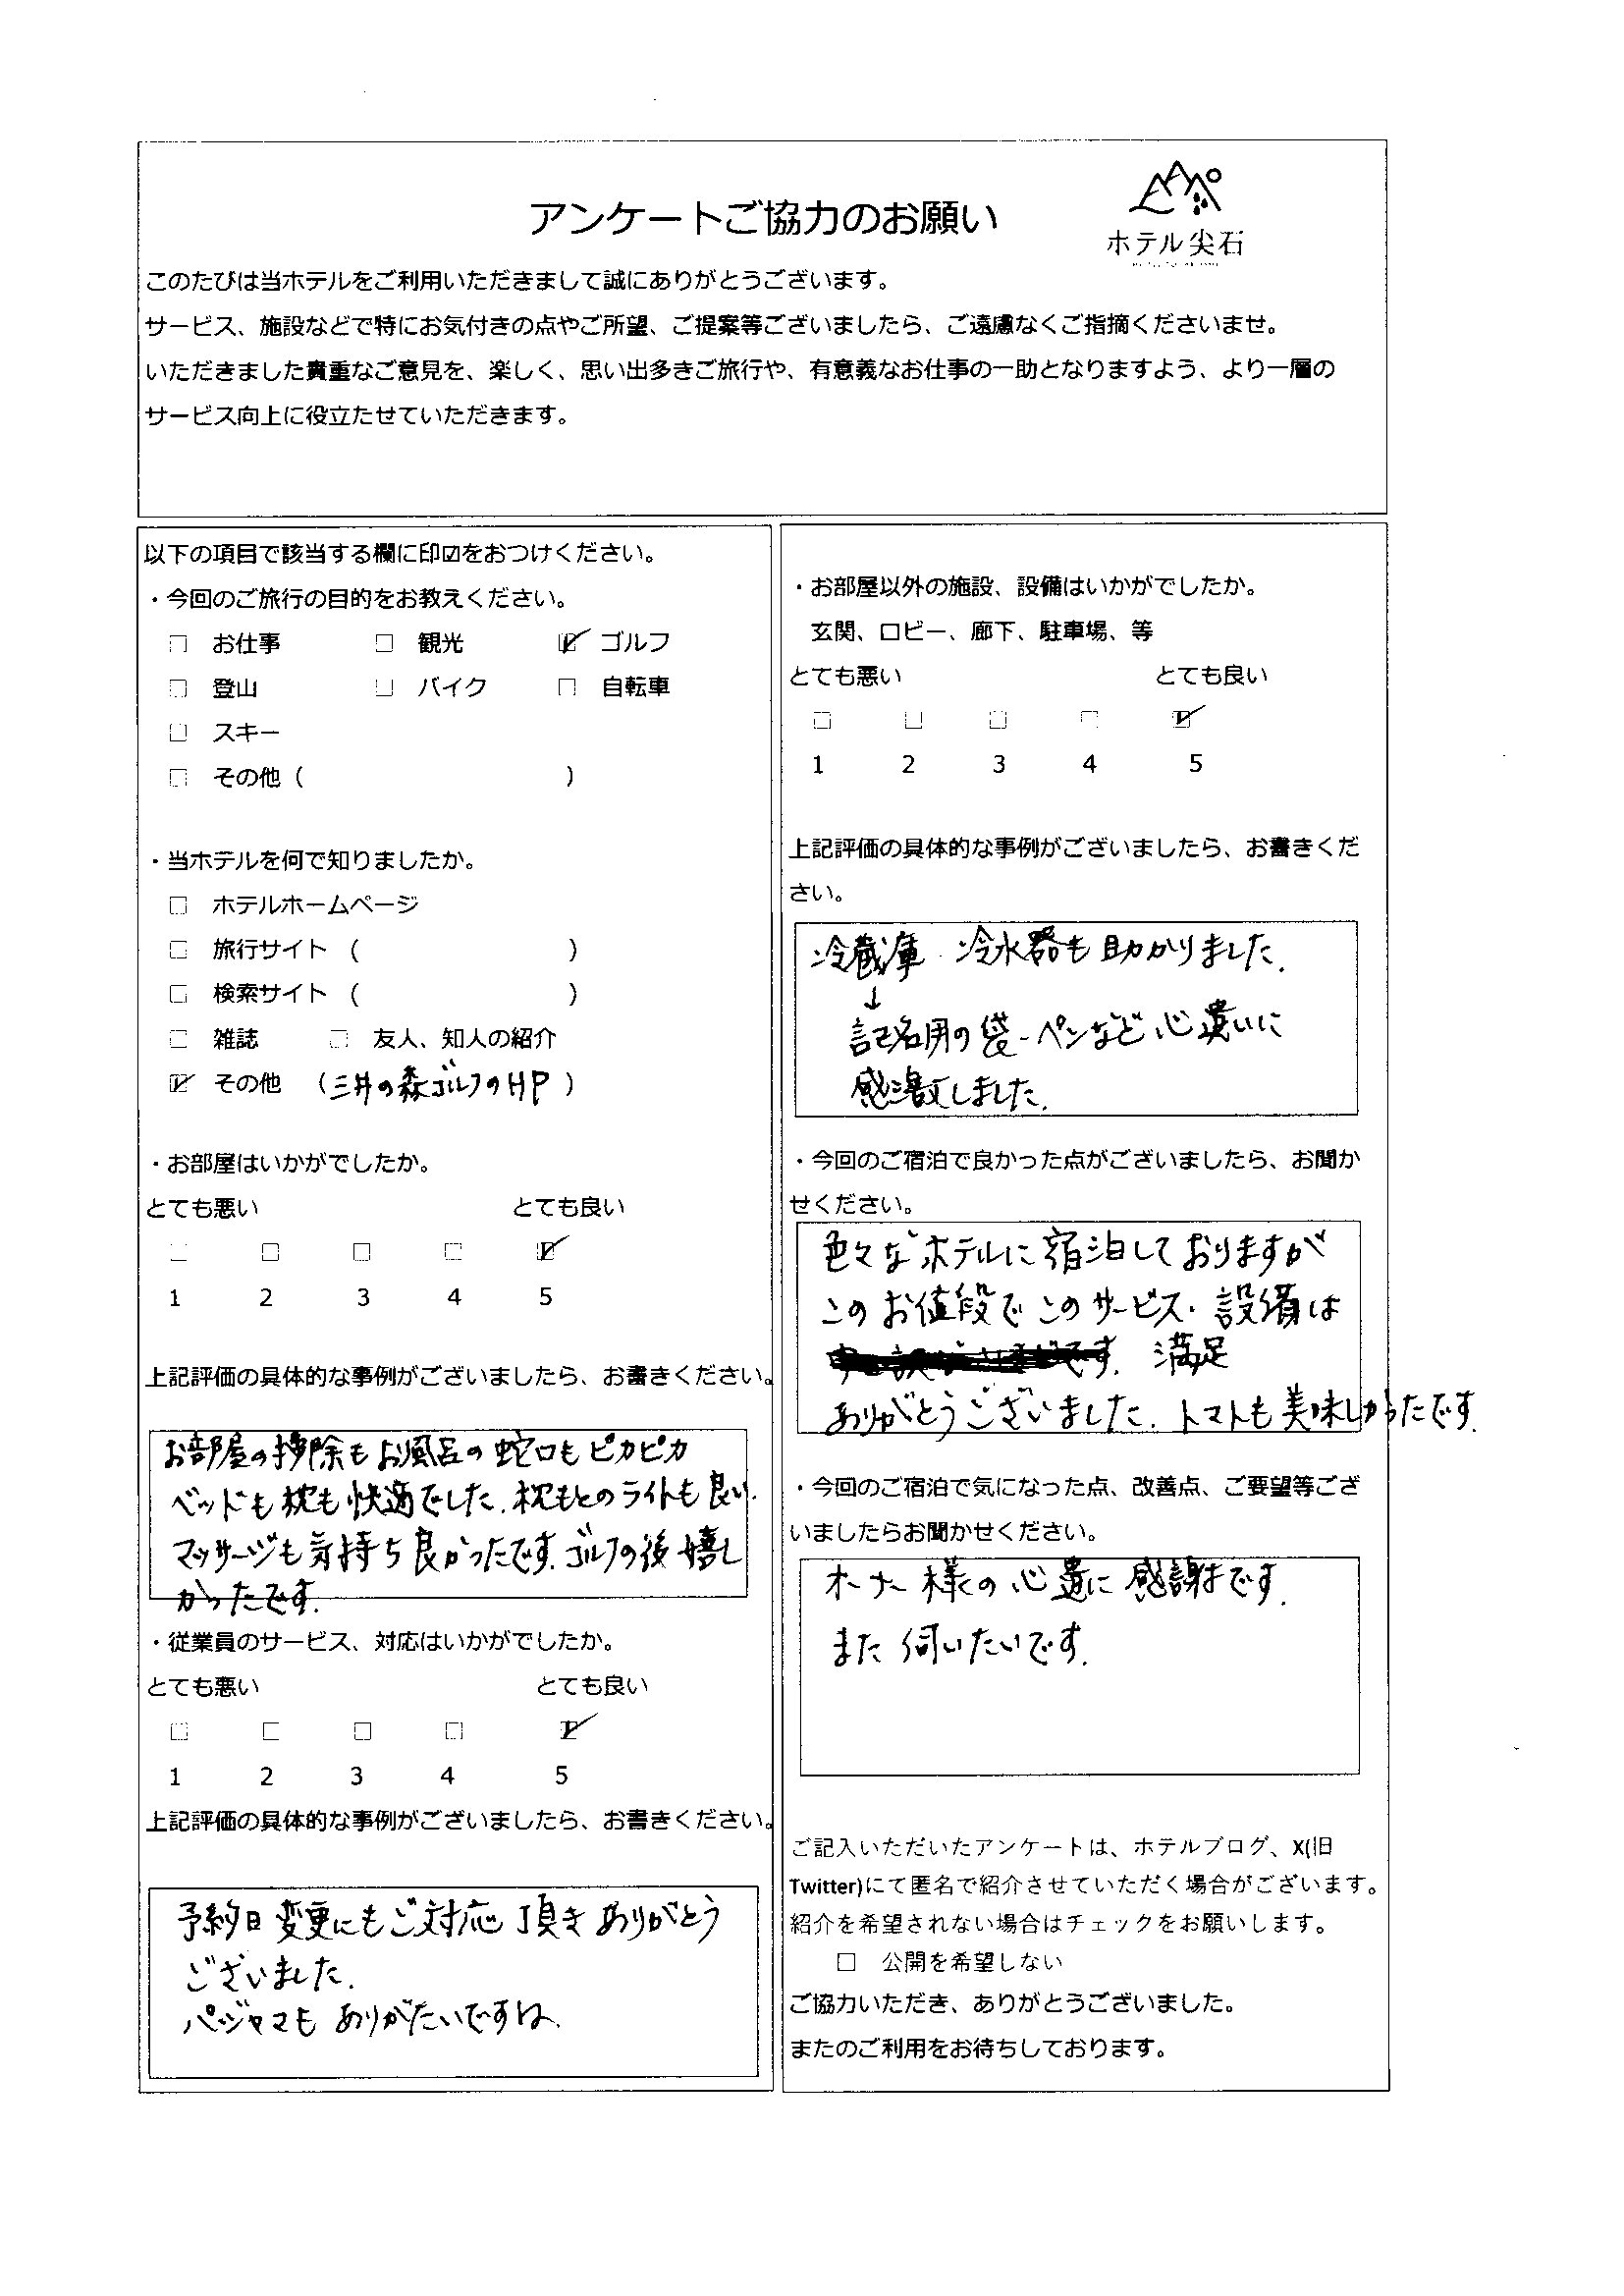 アンケートご協力のお願い
ホテル尖石
このたびは当ホテルをご利用いただきまして誠にありがとうございます。
サービス、施設などで特にお気付きの点やご所望、ご提案等ございましたら、ご遠慮なくご指摘くださいませ。
いただきました貴重なご意見を、楽しく、思い出多きご旅行や、有意義なお仕事の一助となりますよう、より一層の
サービス向上に役立たせていただきます。
以下の項目で該当する欄に印☑をおつけください。
・今回のご旅行の目的をお教えください。
□ お仕事 □ 観光 ☑ ゴルフ
□ 登山 □ バイク □ 自転車
□ スキー
□ その他 ( )
・当ホテルを何で知りましたか。
□ ホテルホームページ
□ 旅行サイト ( )
□ 検索サイト ( )
□ 雑誌 □ 友人、知人の紹介
☑ その他 (三井の森ゴルフのHP)
・お部屋はいかがでしたか。
とても悪い とても良い
□ □ □ □ ☑
1 2 3 4 5
上記評価の具体的な事例がございましたら、お書きください。
お部屋の掃除もお風呂の蛇口もピカピカ
ベッドも枕も快適でした.枕もとのライトも良い.
マッサージも気持ち良かったです.ゴルフの後嬉し
かったです.
・従業員のサービス、対応はいかがでしたか。
とても悪い とても良い
□ □ □ □ ☑
1 2 3 4 5
上記評価の具体的な事例がございましたら、お書きください。
予約日変更にもご対応頂きありがとう
ございました.
パジャマもありがたいですね.
・お部屋以外の施設、設備はいかがでしたか。
玄関、ロビー、廊下、駐車場、等
とても悪い とても良い
□ □ □ □ ☑
1 2 3 4 5
上記評価の具体的な事例がございましたら、お書きくだ
さい。
冷蔵庫・冷水器も助かりました.
↓
記名用の袋-ペンなど心遣いに
感激しました.
・今回のご宿泊で良かった点がございましたら、お聞か
せください。
色々なホテルに宿泊しておりますが
このお値段でこのサービス・設備は
満足
ありがとうございました.トマトも美味しかったです.
・今回のご宿泊で気になった点、改善点、ご要望等ござ
いましたらお聞かせください。
オーナー様の心遣に感謝です.
また伺いたいです.
ご記入いただいたアンケートは、ホテルブログ、X(旧
Twitter)にて匿名で紹介させていただく場合がございます。
紹介を希望されない場合はチェックをお願いします。
□ 公開を希望しない
ご協力いただき、ありがとうございました。
またのご利用をお待ちしております。